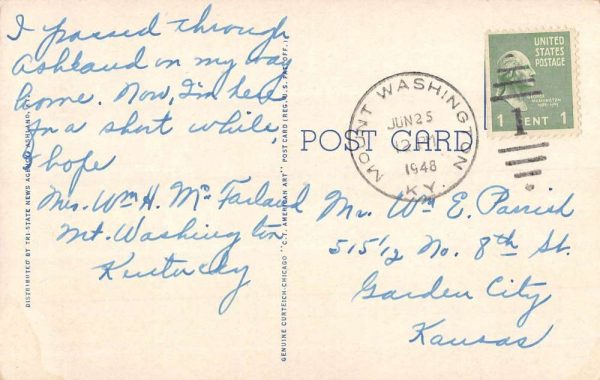 I passed through
Ashland on my way
home. Now, I'm here
for a short while,
I hope
Mrs. Wm H. McFarland
Mt. Washington
Kentucky
DISTRIBUTED BY TRI-STATE NEWS AGENCY, ASHLAND, KY.
GENUINE CURTEICH-CHICAGO "C.T. AMERICAN ART" POST CARD (REG. U.S. PAT. OFF.)
POST CARD
MOUNT WASHINGTON
JUN 25
1948
KY.
UNITED
STATES
POSTAGE
1 CENT 1
1
Mr. Wm E. Parrish
515 1/2 No. 8th St.
Garden City
Kansas